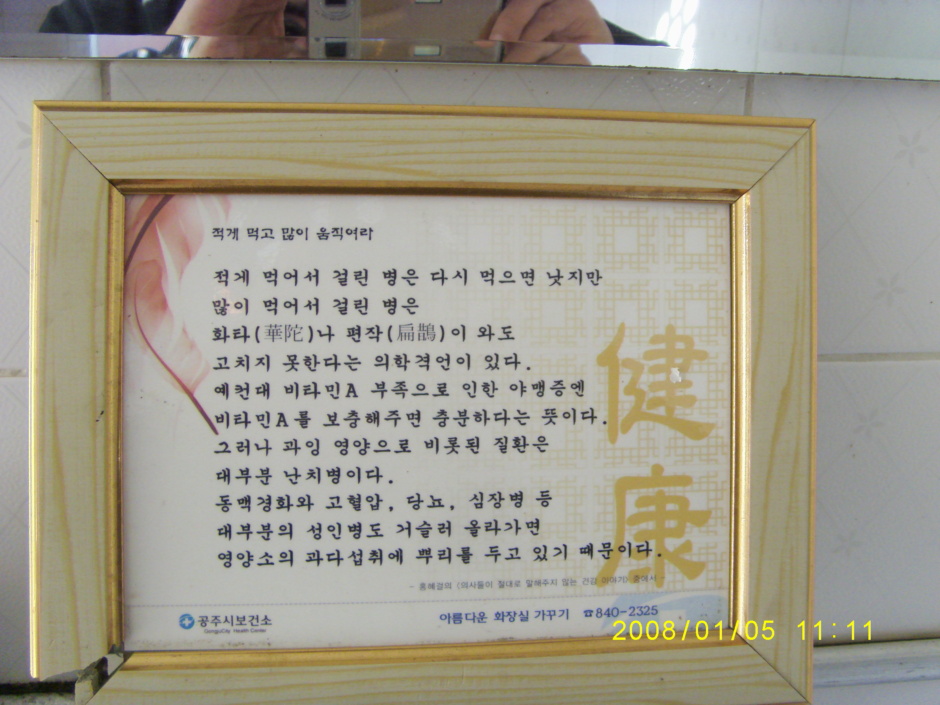 적게 먹고 많이 움직여라
적게 먹어서 걸린 병은 다시 먹으면 낫지만
많이 먹어서 걸린 병은
화타(華陀)나 편작(扁鵲)이 와도
고치지 못한다는 의학격언이 있다.
예컨대 비타민A 부족으로 인한 야맹증엔
비타민A를 보충해주면 충분하다는 뜻이다.
그러나 과잉 영양으로 비롯된 질환은
대부분 난치병이다.
동맥경화와 고혈압, 당뇨, 심장병 등
대부분의 성인병도 거슬러 올라가면
영양소의 과다섭취에 뿌리를 두고 있기 때문이다.
- 홍혜걸의 《의사들이 절대로 말해주지 않는 건강 이야기》 중에서 -
健康
공주시보건소
GongjuCity Health Center
아름다운 화장실 가꾸기 ☎840-2325
2008/01/05 11:11